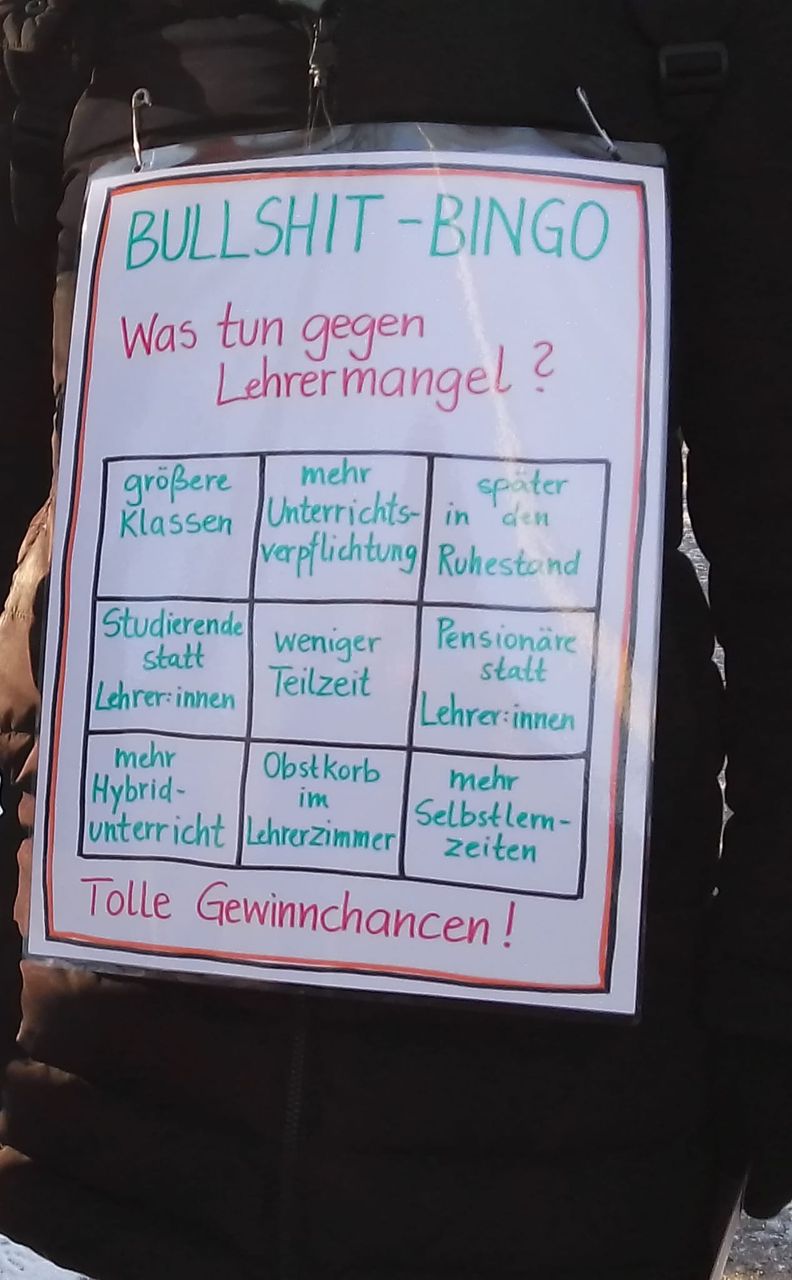 BULLSHIT - BINGO
Was tun gegen
Lehrermangel?
größere
Klassen
mehr
Unterrichts-
verpflichtung
später
in den
Ruhestand
Studierende
statt
Lehrer:innen
weniger
Teilzeit
Pensionäre
statt
Lehrer:innen
mehr
Hybrid-
unterricht
Obstkorb
im
Lehrerzimmer
mehr
Selbstlern-
zeiten
Tolle Gewinnchancen!